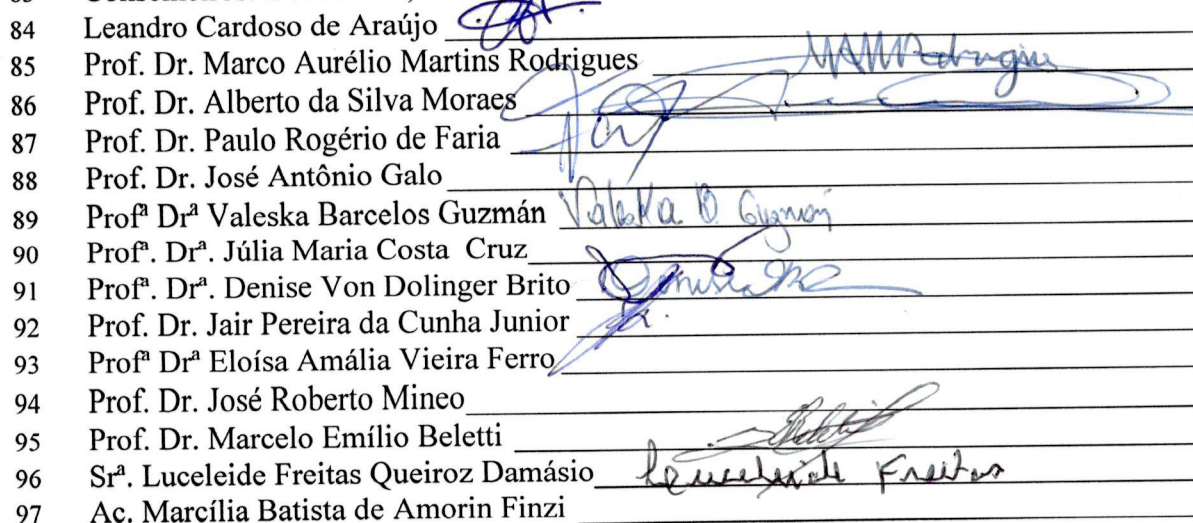 84 Leandro Cardoso de Araújo
85 Prof. Dr. Marco Aurélio Martins Rodrigues MAMRodrigues
86 Prof. Dr. Alberto da Silva Moraes
87 Prof. Dr. Paulo Rogério de Faria
88 Prof. Dr. José Antônio Galo
89 Profª Drª Valeska Barcelos Guzmán Valeska B. Guzmán
90 Profª. Drª. Júlia Maria Costa Cruz
91 Profª. Drª. Denise Von Dolinger Brito
92 Prof. Dr. Jair Pereira da Cunha Junior
93 Profª Drª Eloísa Amália Vieira Ferro
94 Prof. Dr. José Roberto Mineo
95 Prof. Dr. Marcelo Emílio Beletti
96 Srª. Luceleide Freitas Queiroz Damásio Luceleide Freitas
97 Ac. Marcília Batista de Amorin Finzi